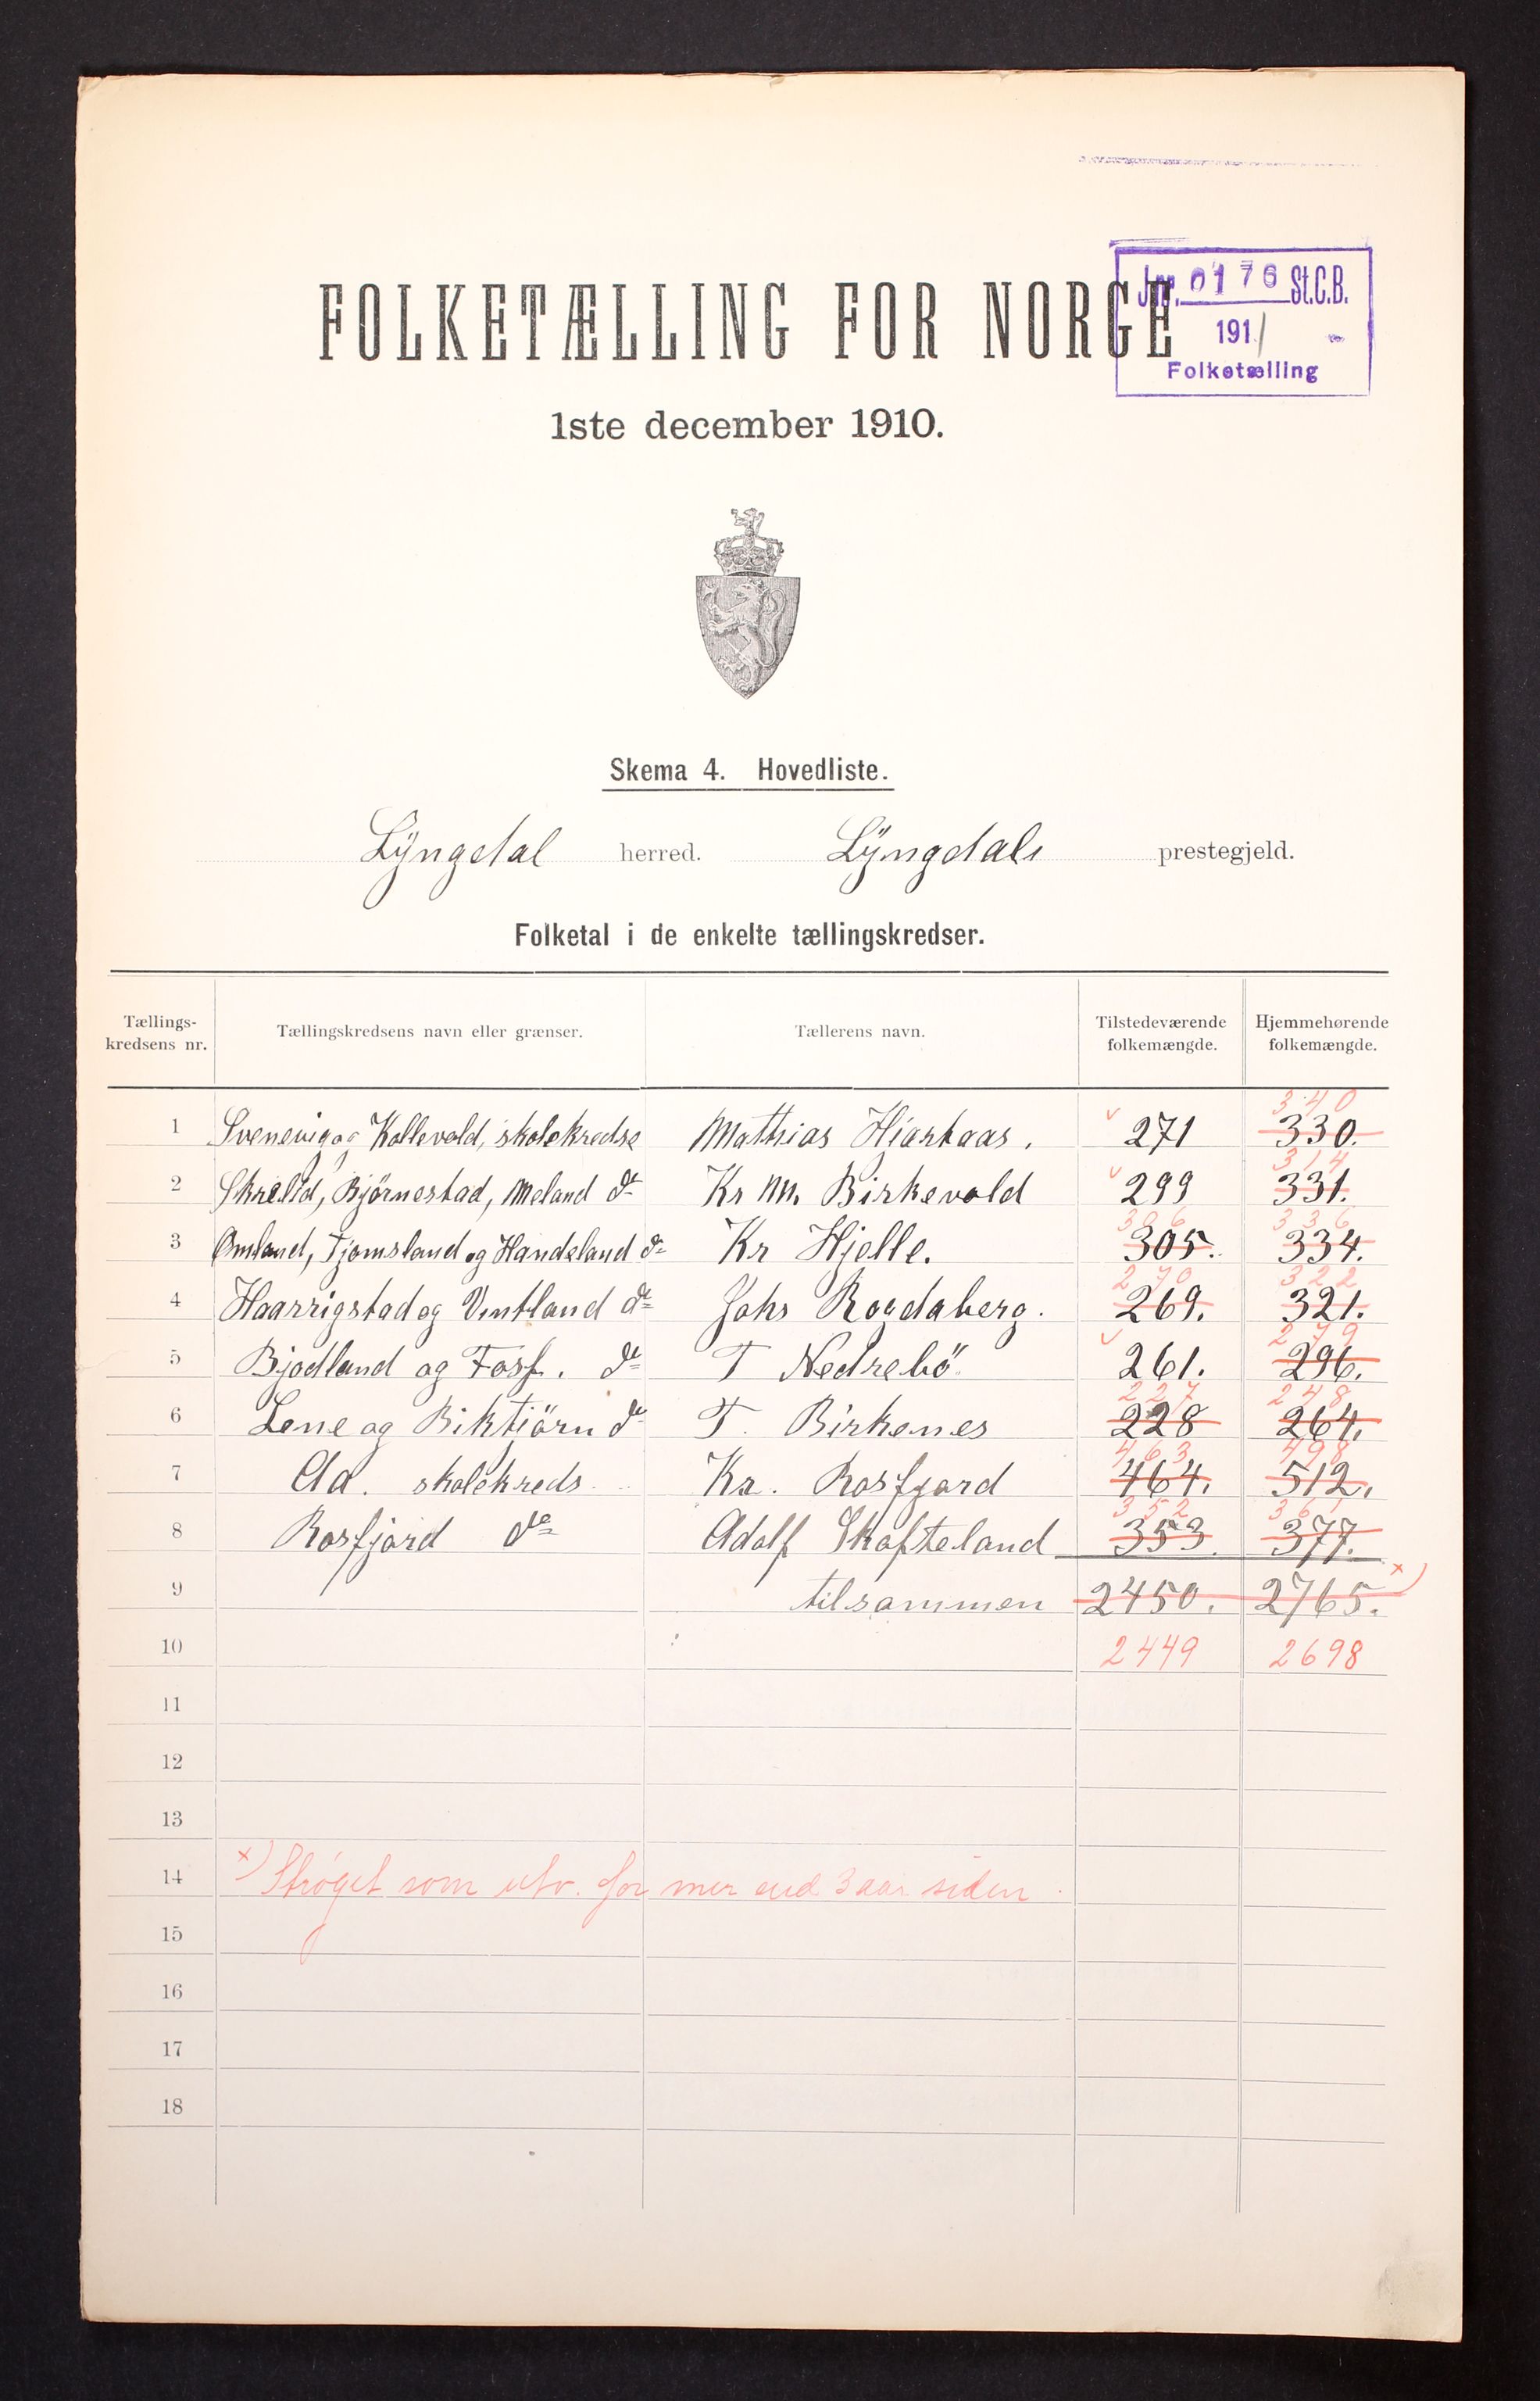 Jnr. 0176 St.C.B.
1911
Folketælling
FOLKETÆLLING FOR NORGE
1ste december 1910.
Skema 4. Hovedliste.
Lyngdal herred. Lyngdals prestegjeld.
Folketal i de enkelte tællingskredser.
Tællings-kredsens nr. Tællingskredsens navn eller grænser. Tællerens navn. Tilstedeværende folkemængde. Hjemmehørende folkemængde.
340
1 Svenevig og Kollevold, skolekredse Mathias v 271 330.
314
2 Skrelid, Bjørnestad, Meland do Kr M. Birkevold v 299 331.
306 336
3 Omland, Tjomsland og Handeland do Kr Hjelle. 305. 334.
270 322
4 Haarrigstad og Vintland do Johs Rogdaberg. 269. 321.
279
5 Bjodland og Foss. do T Nedrebö v 261. 296.
227 248
6 Lene og Biktjörn do T. Birkenes 228 264.
463 498
7 Aa. skolekreds Kr. Rosfjord 464. 512.
352 361
8 Rosfjord do Adolf Skofteland 353. 377.
9 tilsammen 2450. 2765. x)
10 2449 2698
11
12
13
14 x) Strøget som utv. for mer end 3 aar siden
15
16
17
18